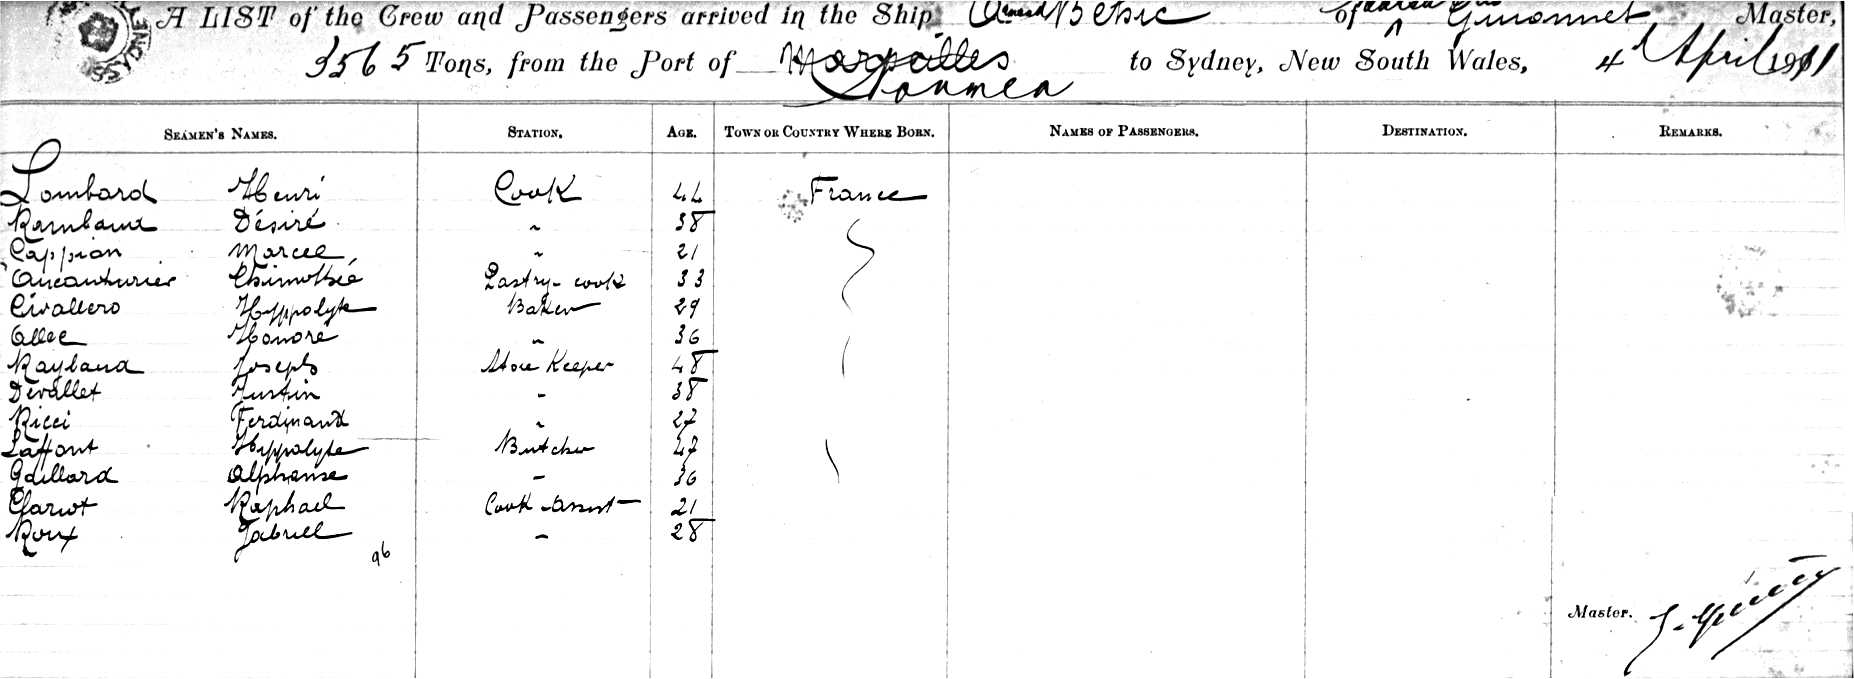 A LIST of the Crew and Passengers arrived in the Ship Armand Behic of Guionnet Master,
3565 Tons, from the Port of Marseilles Noumea to Sydney, New South Wales, 4th April 1911
SEAMEN'S NAMES. STATION. AGE. TOWN OR COUNTRY WHERE BORN. NAMES OF PASSENGERS. DESTINATION. REMARKS.
Lombard Henri Cook 44 France
Rambaud Désiré " 38
Cappian Marcel " 21
Aucanturier Thimothée Pastry-cook 33
Civallero Hyppolyte Baker 29
Allec Honoré " 36
Raybaud Joseph Store Keeper 48
Devallet Justin " 38
Ricci Ferdinand " 27
Laffont Hyppolyte Butcher 47
Gaillard Alphonse " 36
Clariot Raphael Cook-assist 21
Roux Gabriel " 28
96
Master.